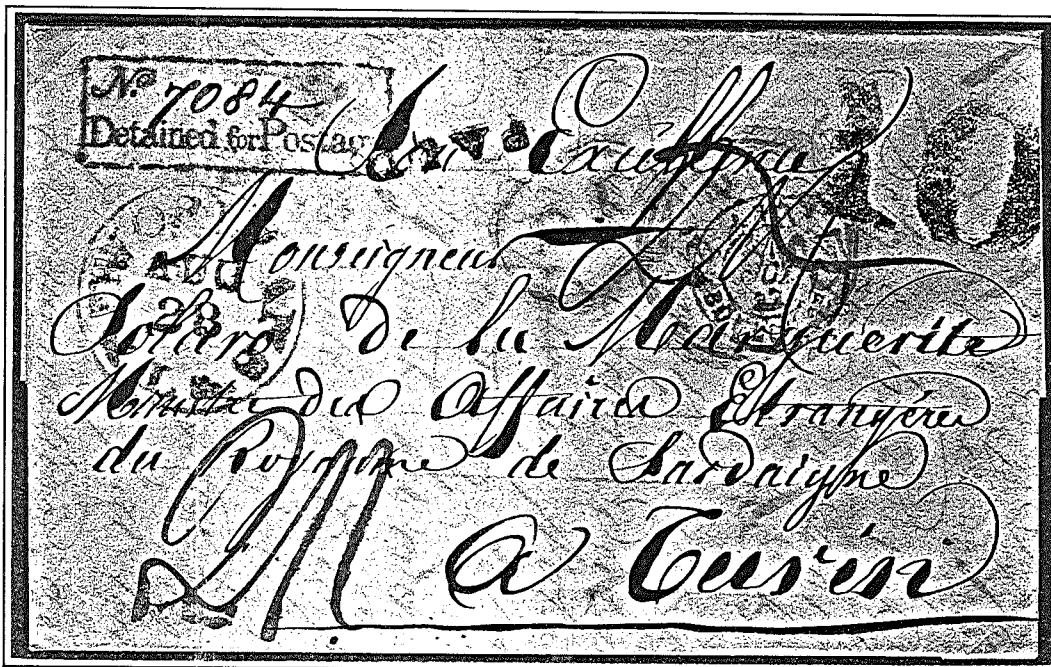 No 7084
Detained for Postag
Son Excellence
10
Monseigneur
AUG
28
Solaro De la Marguerite
Ministre des Affaires Etrangères
du Royaume de Sardaigne
à Turin